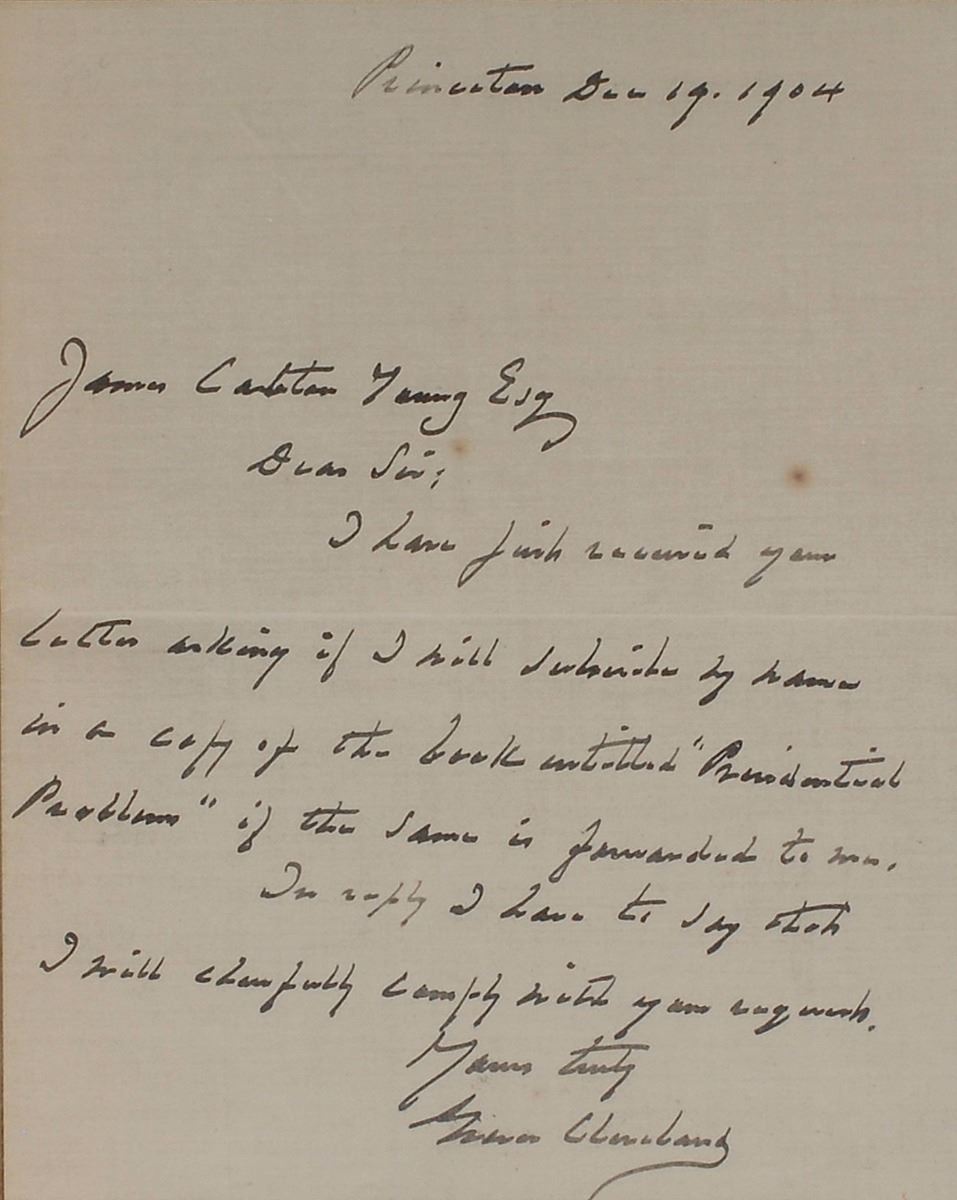 Princeton Dec 19. 1904
James Carleton Young Esq
Dear Sir;
I have just received your
letter asking if I will subscribe my name
in a copy of the book entitled "Presidential
Problems" if the same is forwarded to me.
In reply I have to say that
I will cheerfully comply with your request.
Yours truly
Grover Cleveland